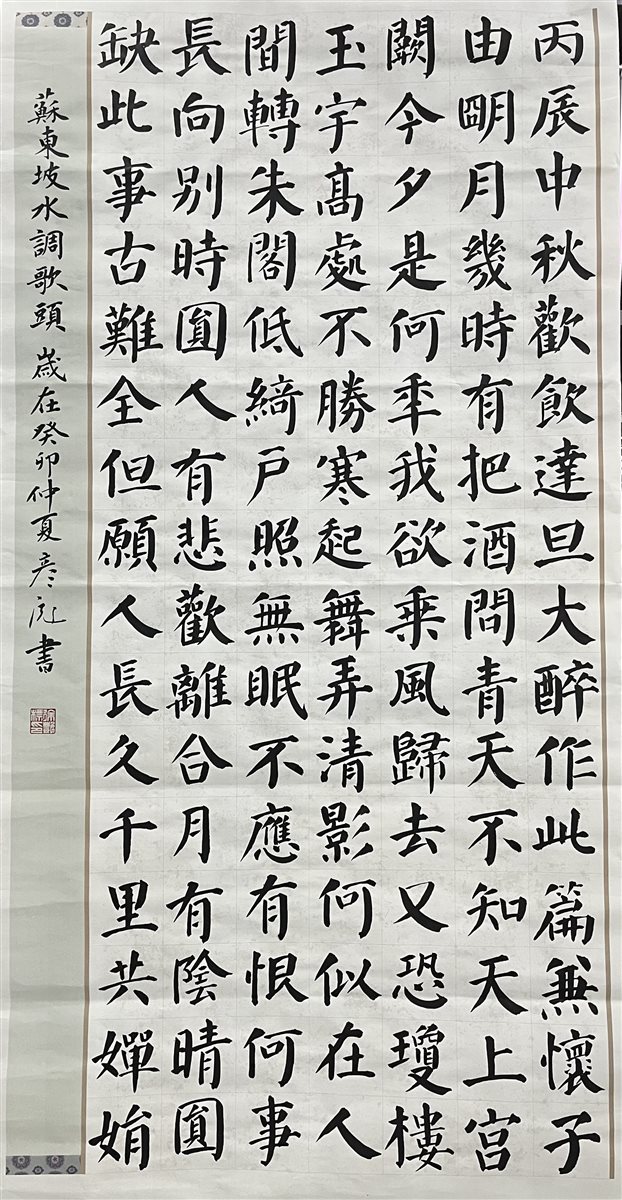 丙辰中秋歡飲達旦大醉作此篇兼懷子
由朙月幾時有把酒問青天不知天上宮
闕今夕是何秊我欲乗風歸去又恐瓊樓
玉宇髙處不勝寒起舞弄清影何似在人
間轉朱閣低綺戶照無眠不應有恨何事
長向别時圓人有悲歡離合月有陰晴圓
缺此事古難全但願人長久千里共嬋娟
蘇東坡水調歌頭 歲在癸卯仲夏彥彪書